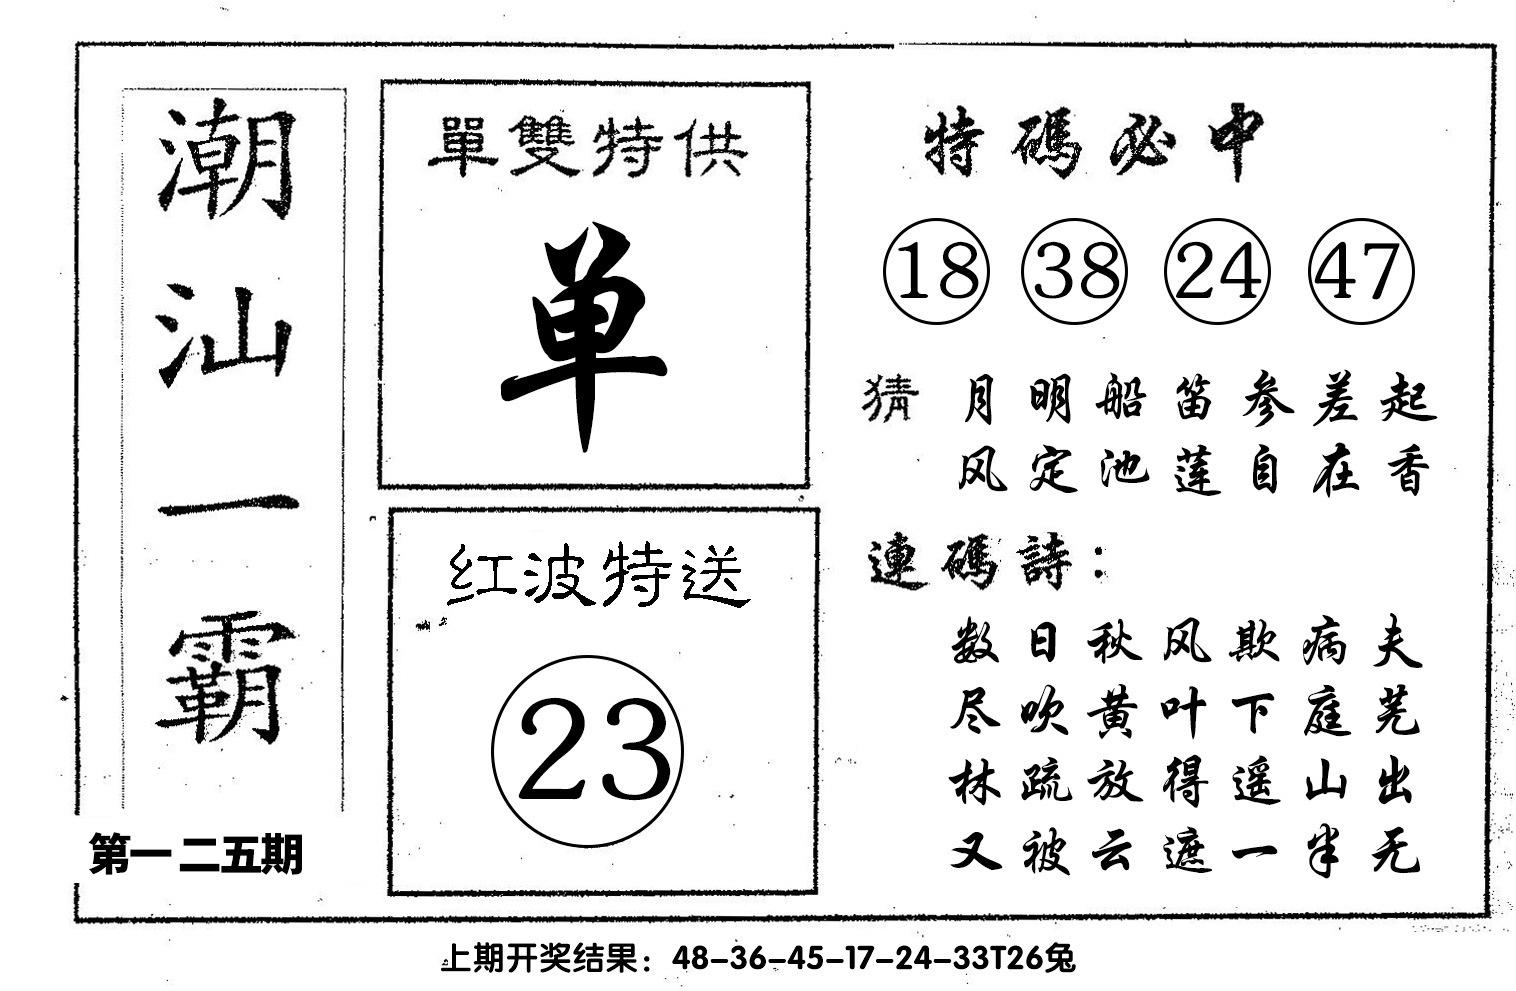 潮汕一霸
第一二五期
單雙特供
单
红波特送
23
特碼必中
18 38 24 47
猜 月明船笛参差起
风定池莲自在香
連碼詩：
数日秋风欺病夫
尽吹黄叶下庭芜
林疏放得遥山出
又被云遮一半无
上期开奖结果：48-36-45-17-24-33T26兔